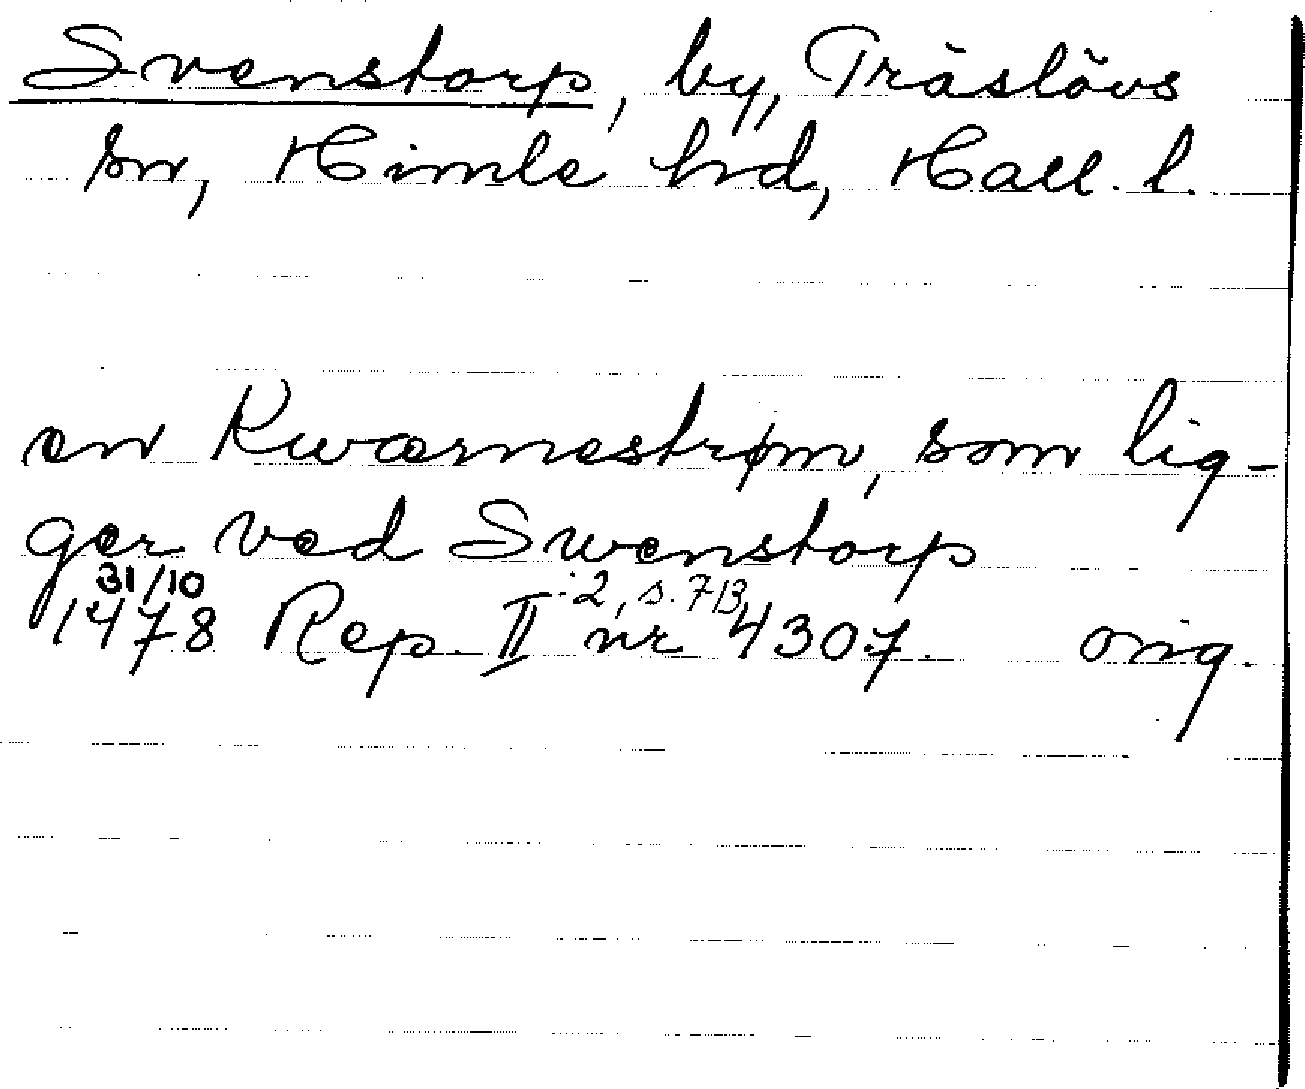 Svenstorp, by, Träslövs
sn, Himle hrd, Hall. l.
en Kwærnestrøm, som lig-
ger ved Swenstorp
31/10
1478 Rep. II :2, s. 713, nr 4307. orig.